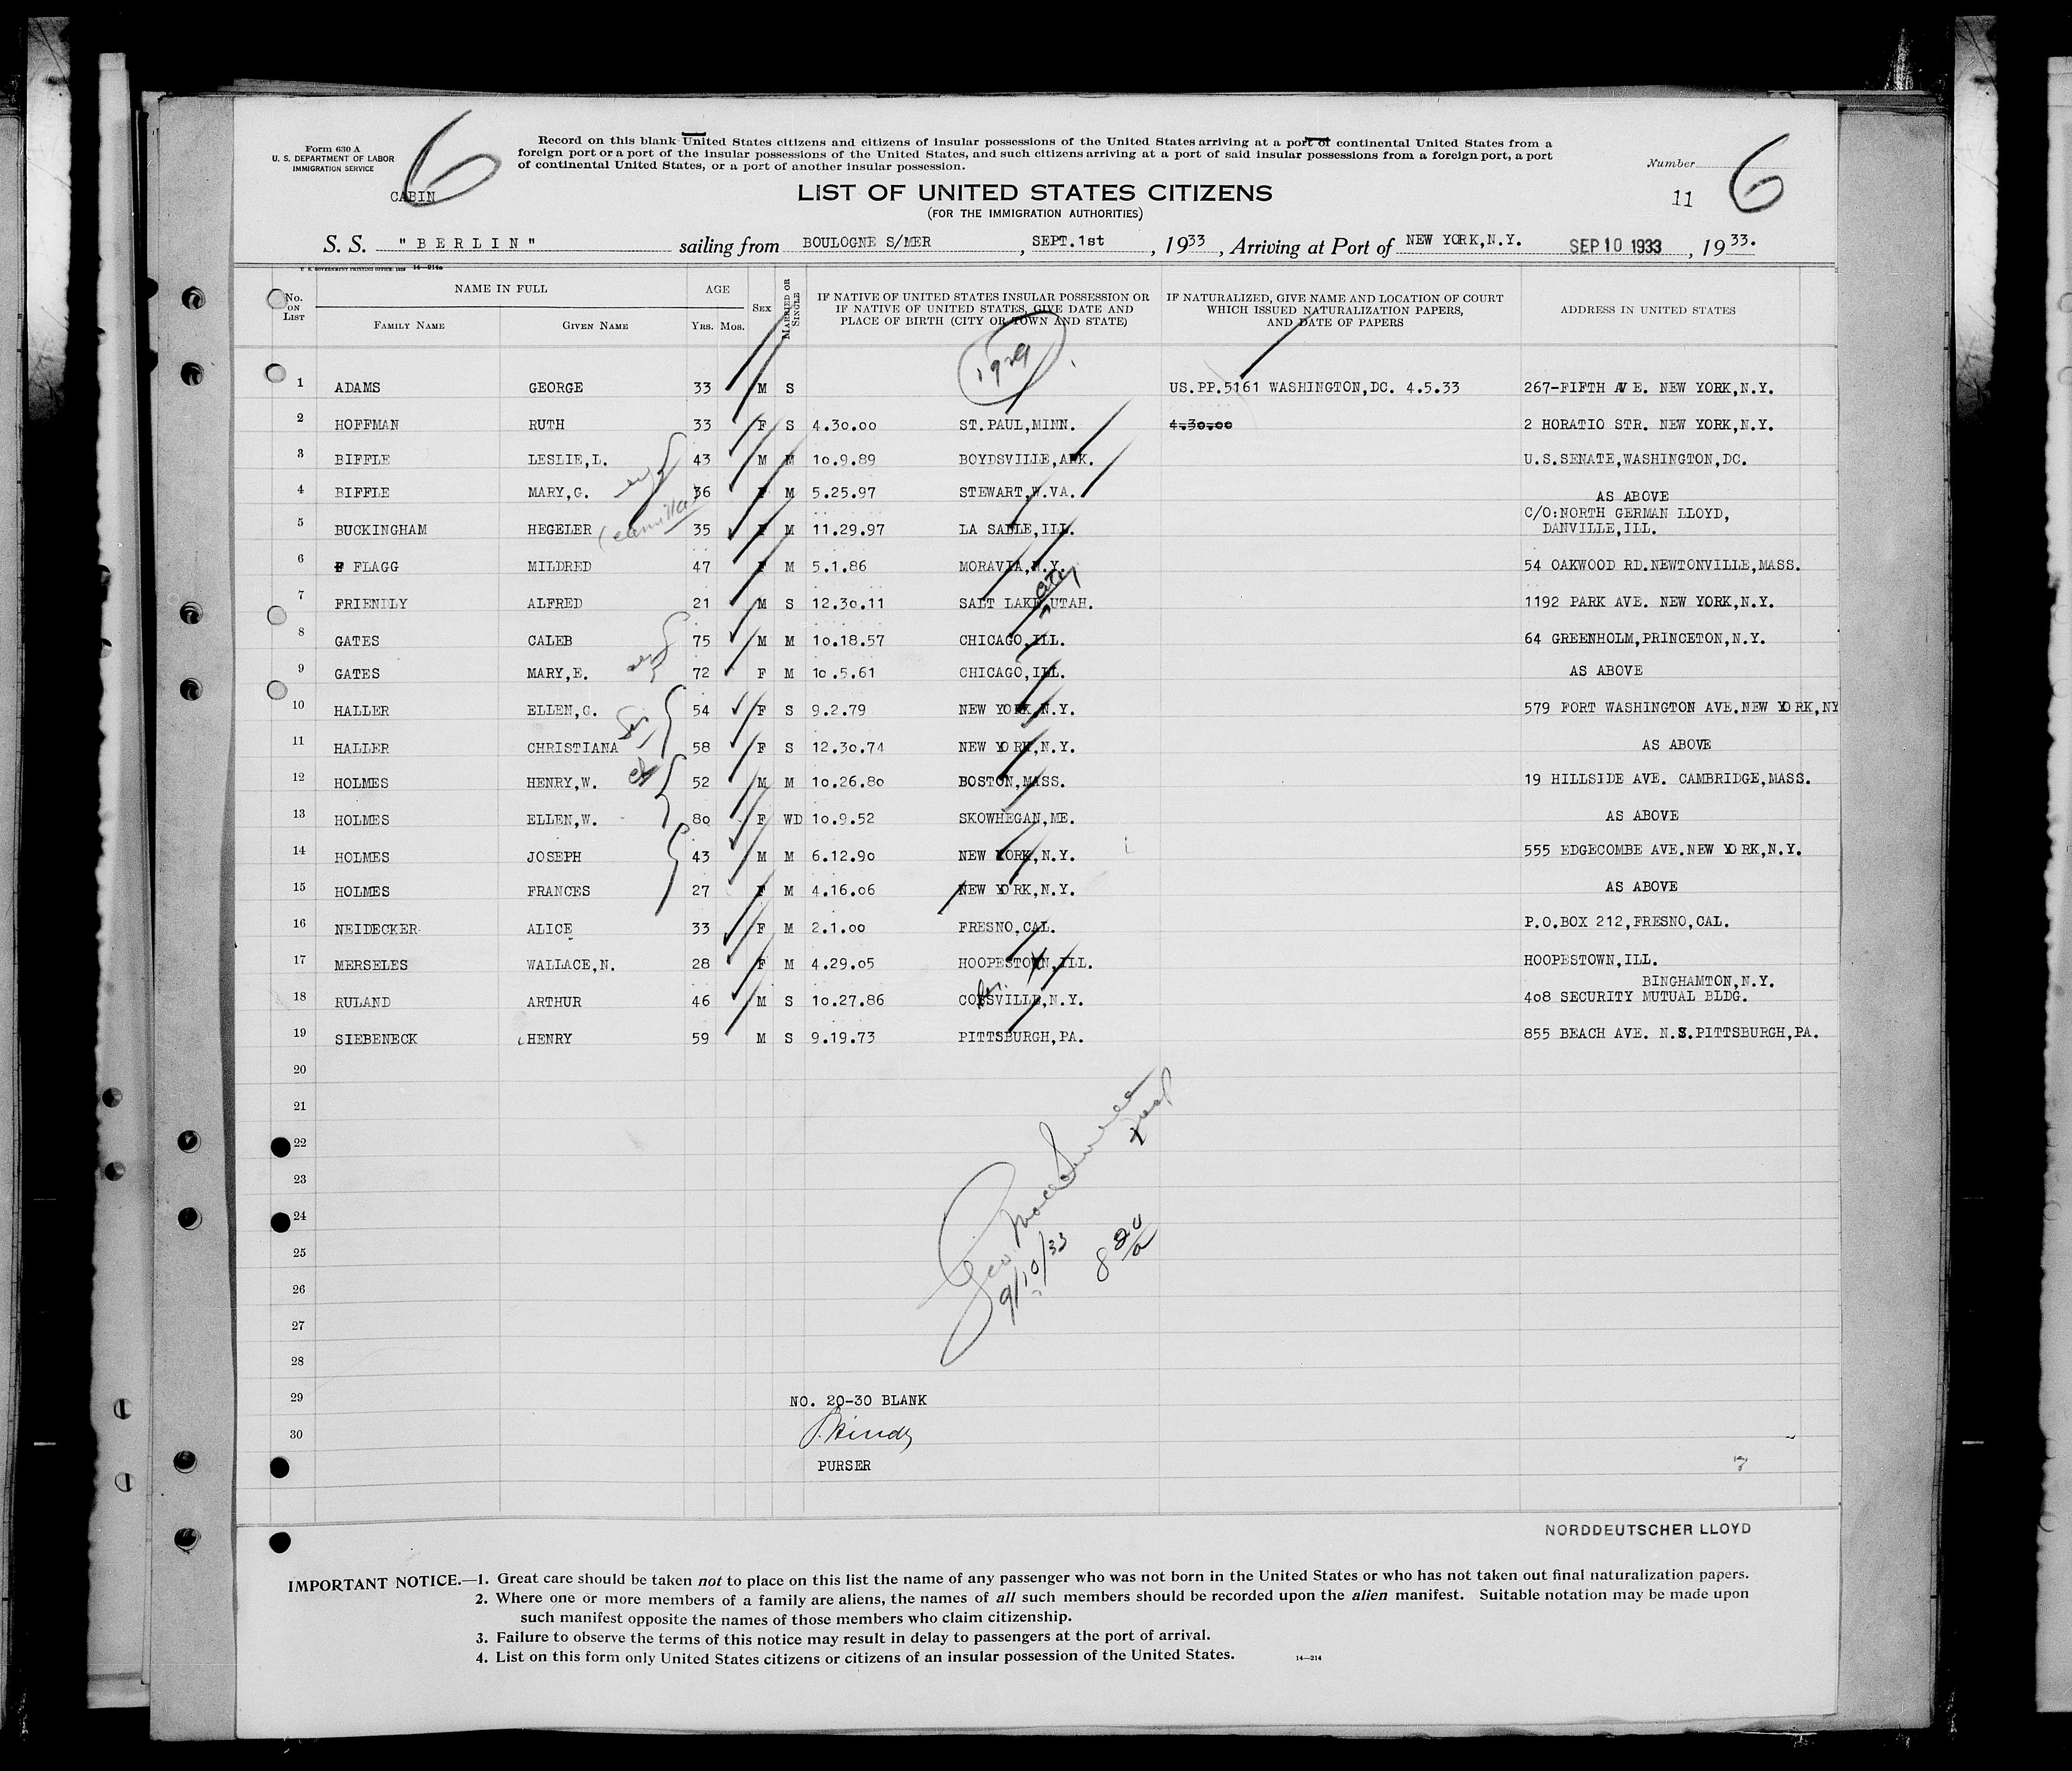 Form 630 A
U. S. DEPARTMENT OF LABOR
IMMIGRATION SERVICE
CABIN
6
Record on this blank United States citizens and citizens of insular possessions of the United States arriving at a port of continental United States from a
foreign port or a port of the insular possessions of the United States, and such citizens arriving at a port of said insular possessions from a foreign port, a port
of continental United States, or a port of another insular possession.
Number
11
6
LIST OF UNITED STATES CITIZENS
(FOR THE IMMIGRATION AUTHORITIES)
S. S. "BERLIN" sailing from BOULOGNE S/MER, SEPT.1st, 1933, Arriving at Port of NEW YORK,N.Y. SEP 10 1933, 1933.
U. S. GOVERNMENT PRINTING OFFICE: 1929 14—214a
No. ON LIST
NAME IN FULL
FAMILY NAME
GIVEN NAME
AGE
Yrs. Mos.
SEX
MARRIED OR SINGLE
IF NATIVE OF UNITED STATES INSULAR POSSESSION OR
IF NATIVE OF UNITED STATES, GIVE DATE AND
PLACE OF BIRTH (CITY OR TOWN AND STATE)
IF NATURALIZED, GIVE NAME AND LOCATION OF COURT
WHICH ISSUED NATURALIZATION PAPERS,
AND DATE OF PAPERS
ADDRESS IN UNITED STATES
1929
1 ADAMS GEORGE 33 M S US.PP.5161 WASHINGTON,DC. 4.5.33 267-FIFTH AVE. NEW YORK,N.Y.
2 HOFFMAN RUTH 33 F S 4.30.00 ST.PAUL,MINN. 4.30.00 2 HORATIO STR. NEW YORK,N.Y.
3 BIFFLE LESLIE,L. 43 M M 10.9.89 BOYDSVILLE,ARK. U.S.SENATE,WASHINGTON,DC.
4 BIFFLE MARY,G. 36 F M 5.25.97 STEWART,W.VA. AS ABOVE
5 BUCKINGHAM HEGELER (camilla 35 F M 11.29.97 LA SALLE,ILL. C/O:NORTH GERMAN LLOYD,
DANVILLE,ILL.
6 F FLAGG MILDRED 47 F M 5.1.86 MORAVIA,N.Y. 54 OAKWOOD RD.NEWTONVILLE,MASS.
7 FRIENDLY ALFRED 21 M S 12.30.11 SALT LAKE city UTAH. 1192 PARK AVE. NEW YORK,N.Y.
8 GATES CALEB 75 M M 10.18.57 CHICAGO,ILL. 64 GREENHOLM,PRINCETON,N.Y.
9 GATES MARY,E. 72 F M 10.5.61 CHICAGO,ILL. AS ABOVE
10 HALLER ELLEN,G. 54 F S 9.2.79 NEW YORK,N.Y. 579 FORT WASHINGTON AVE.NEW YORK,NY
11 HALLER CHRISTIANA 58 F S 12.30.74 NEW YORK,N.Y. AS ABOVE
12 HOLMES HENRY,W. 52 M M 10.26.80 BOSTON,MASS. 19 HILLSIDE AVE. CAMBRIDGE,MASS.
13 HOLMES ELLEN,W. 80 F WD 10.9.52 SKOWHEGAN,ME. AS ABOVE
14 HOLMES JOSEPH 43 M M 6.12.90 NEW YORK,N.Y. 555 EDGECOMBE AVE.NEW YORK,N.Y.
15 HOLMES FRANCES 27 F M 4.16.06 NEW YORK,N.Y. AS ABOVE
16 NEIDECKER ALICE 33 F M 2.1.00 FRESNO,CAL. P.O.BOX 212,FRESNO,CAL.
17 MERSELES WALLACE,N. 28 F M 4.29.05 HOOPESTOWN,ILL. HOOPESTOWN,ILL.
BINGHAMTON,N.Y.
18 RULAND ARTHUR 46 M S 10.27.86 COTSVILLE,N.Y. 408 SECURITY MUTUAL BLDG.
19 SIEBENECK HENRY 59 M S 9.19.73 PITTSBURGH,PA. 855 BEACH AVE. N.S.PITTSBURGH,PA.
20
21
22
23
24
25
26
27
28
29
30
9/10/33
8 20/a
NO. 20-30 BLANK
PURSER
NORDDEUTSCHER LLOYD
IMPORTANT NOTICE.—1. Great care should be taken not to place on this list the name of any passenger who was not born in the United States or who has not taken out final naturalization papers.
2. Where one or more members of a family are aliens, the names of all such members should be recorded upon the alien manifest. Suitable notation may be made upon
such manifest opposite the names of those members who claim citizenship.
3. Failure to observe the terms of this notice may result in delay to passengers at the port of arrival.
4. List on this form only United States citizens or citizens of an insular possession of the United States.
14—214